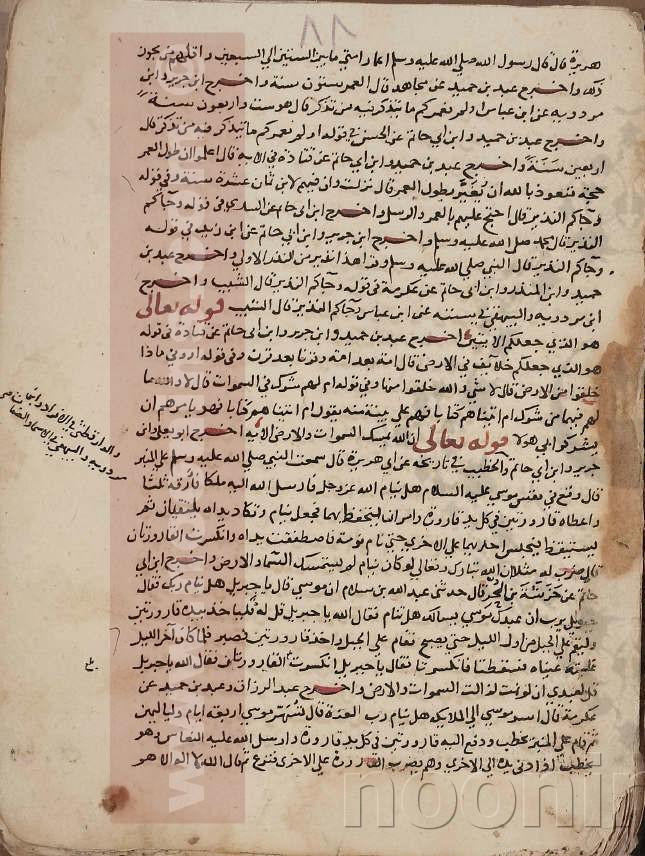 ٨٨
هريرة قال قال رسول الله صلى الله عليه وسلم اعمار امتي ما بين الستين الى السبعين واقلهم من يجوز
ذلك واخرج عبد بن حميد عن مجاهد قال العمر ستون سنة واخرج ابن جرير وابن
مردويه عن ابن عباس اولم نعمركم ما يتذكر فيه من تذكر قال هو ست واربعون سنة
واخرج عبد بن حميد وابن ابي حاتم عن الحسن في قوله اولم نعمركم ما يتذكر فيه من تذكر قال
اربعين سنة واخرج عبد بن حميد وابن ابي حاتم عن قتادة في الاية قال اعلموا ان طول العمر
حجة فنعوذ بالله ان نعير بطول العمر قال نزلت وان فيهم لابن ثمان عشرة سنة وفي قوله
وجاكم النذير قال احتج عليهم بالعمر والرسل واخرج ابن ابي حاتم عن السدي في قوله وجاكم
النذير قال محمد صلى الله عليه وسلم واخرج ابن جرير وابن ابي حاتم عن ابن زيد في قوله
وجاكم النذير قال النبي صلى الله عليه وسلم وقرا هذا نذير من النذر الاولى واخرج عبد بن
حميد وابن المنذر وابن ابي حاتم عن عكرمة في قوله وجاكم النذير قال الشيب واخرج
ابن مردويه والبيهقي في سننه عن ابن عباس وجاكم النذير قال الشيب قوله تعالى
هو الذي جعلكم الايتين اخرج عبد بن حميد وابن جرير وابن ابي حاتم عن قتادة في قوله
هو الذي جعلكم خلائف في الارض قال امة بعد امة وقرنا بعد قرن وفي قوله اروني ماذا
خلقوا من الارض قال لا شي والله خلقوا منها وفي قوله ام لهم شرك في السموات قال لا والله ما
لهم فيهما من شرك ام اتيناهم كتابا فهم على بينة منه يقول ام اتيناهم كتابا فهو يامرهم ان
يشركوا بي هولا قوله تعالى ان الله يمسك السموات والارض الاية اخرج ابو يعلى وابن
جرير وابن ابي حاتم والخطيب في تاريخه عن ابي هريرة قال سمعت النبي صلى الله عليه وسلم على المنبر
قال وقع في نفس موسى عليه السلام هل ينام الله عز وجل فارسل الله اليه ملكا فارقه ثلثا
واعطاه قارورتين في كل يد قارورة وامره ان يتحفظ بهما فجعل ينام وتكاد يداه يلتقيان ثم
يستيقظ فيحبس احديهما على الاخرى حتى نام نومة فاصطفقت يداه وانكسرت القارورتان
قال ضرب له مثلا ان الله تبارك وتعالى لو كان ينام لم يستمسك السما والارض واخرج ابن ابي
حاتم عن خرشة بن الحر قال حدثني عبد الله بن سلام ان موسى قال يا جبريل هل ينام ربك فقال
جبريل يرب ان عبدك موسى يسالك هل تنام فقال الله يا جبريل قل له فلياخذ بيده قارورتين
وليقم على الجبل من اول الليل حتى يصبح فقام على الجبل واخذ قارورتين فصبر فلما كان آخر الليل
غلبته عيناه فسقطتا فانكسرتا فقال يا جبريل انكسرت القارورتان فقال الله يا جبريل
قل لعبدي اني لو نمت لزالت السموات والارض واخرج عبد الرزاق وعبد بن حميد عن
عكرمة قال اسر موسى الى الملائكة هل ينام رب العزة قال فسهر موسى اربعة ايام ولياليهن
ثم قام على المنبر يخطب ودفع اليه قارورتين في كل يد قارورة وارسل الله عليه النعاس وهو
يخطب اذ ادنى يده الى الاخرى وهم يضرب القارورة على الاخرى ففزع ثم قال الله لا اله الا هو
والدارقطني في الافراد وابن
مردويه والبيهقي في الاسما والصفات
بلغ
noonir